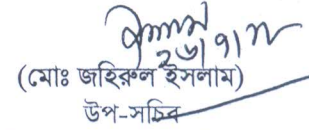 ২৬/৭/
(মোঃ জহিরুল ইসলাম)
উপ-সচিব